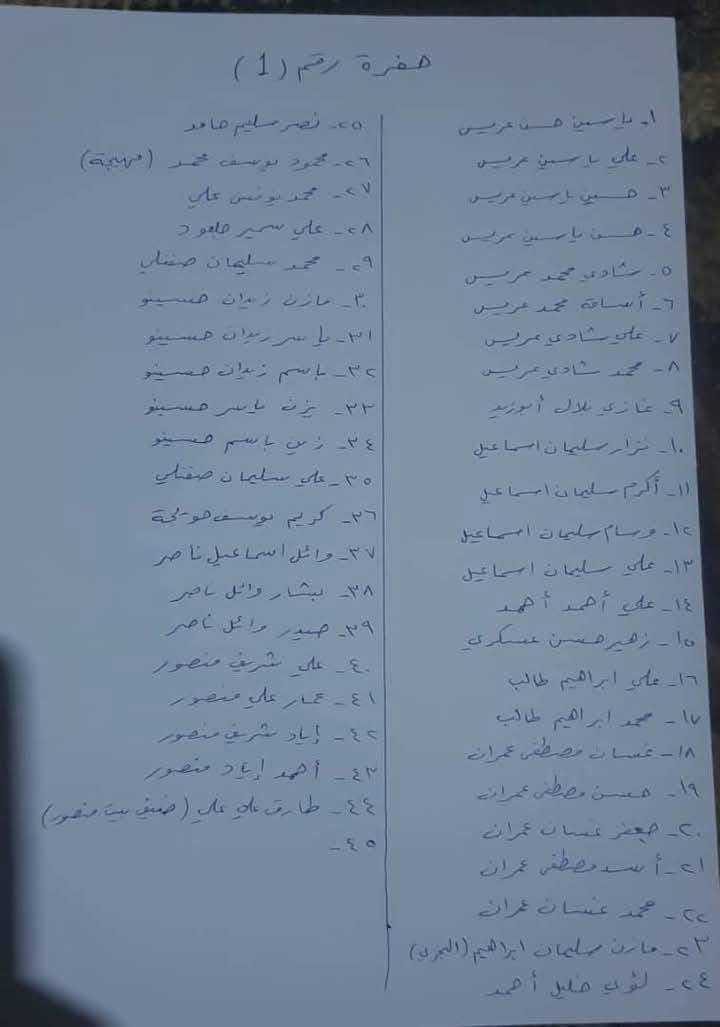 حفرة رقم (1)
١- ياسين حسن عريس
٢- علي ياسين عريس
٣- حسين ياسين عريس
٤- حسن ياسين عريس
٥- شادي محمد عريس
٦- أسامة محمد عريس
٧- علي شادي عريس
٨- محمد شادي عريس
٩- غازي بلال أبوزيد
١٠- نزار سليمان اسماعيل
١١- أكرم سليمان اسماعيل
١٢- وسام سليمان اسماعيل
١٣- علي سليمان اسماعيل
١٤- علي أحمد أحمد
١٥- زهير حسن عسكري
١٦- علي ابراهيم طالب
١٧- محمد ابراهيم طالب
١٨- غسان مصطفى عمران
١٩- حسن مصطفى عمران
٢٠- جعفر غسان عمران
٢١- أسد مصطفى عمران
٢٢- محمد غسان عمران
٢٣- مازن سليمان ابراهيم
٢٤- لؤي خليل أحمد
٢٥- نصر سليم حامد
٢٦- محمود يوسف محمد (مهيجة)
٢٧- محمد يونس علي
٢٨- علي سمير
٢٩- محمد سليمان صقلي
٣٠- مازن زيدان حسينو
٣١- ياسر زيدان حسينو
٣٢- باسم زيدان حسينو
٣٣- يزن ياسر حسينو
٣٤- زين باسم حسينو
٣٥- علي سليمان صقلي
٣٦- كريم يوسف حويجة
٣٧- وائل اسماعيل ناصر
٣٨- بشار وائل ناصر
٣٩- حيدر وائل ناصر
٤٠- علي شريف منصور
٤١- عمار علي منصور
٤٢- إياد شريف منصور
٤٣- أحمد إياد منصور
٤٤- طارق علي علي (ضيف بيت منصور)
٤٥-